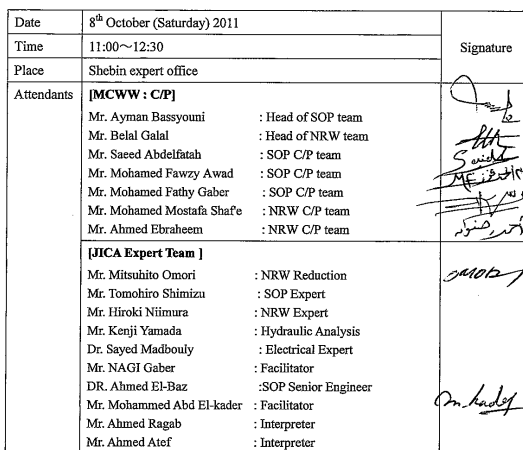 Date 8th October (Saturday) 2011
Time 11:00～12:30 Signature
Place Shebin expert office
Attendants [MCWW : C/P]
Mr. Ayman Bassyouni : Head of SOP team
Mr. Belal Galal : Head of NRW team
Mr. Saeed Abdelfatah : SOP C/P team
Mr. Mohamed Fawzy Awad : SOP C/P team
Mr. Mohamed Fathy Gaber : SOP C/P team
Mr. Mohamed Mostafa Shaf'e : NRW C/P team
Mr. Ahmed Ebraheem : NRW C/P team
[JICA Expert Team ]
Mr. Mitsuhito Omori : NRW Reduction
Mr. Tomohiro Shimizu : SOP Expert
Mr. Hiroki Niimura : NRW Expert
Mr. Kenji Yamada : Hydraulic Analysis
Dr. Sayed Madbouly : Electrical Expert
Mr. NAGI Gaber : Facilitator
DR. Ahmed El-Baz :SOP Senior Engineer
Mr. Mohammed Abd El-kader : Facilitator m.kader
Mr. Ahmed Ragab : Interpreter
Mr. Ahmed Atef : Interpreter